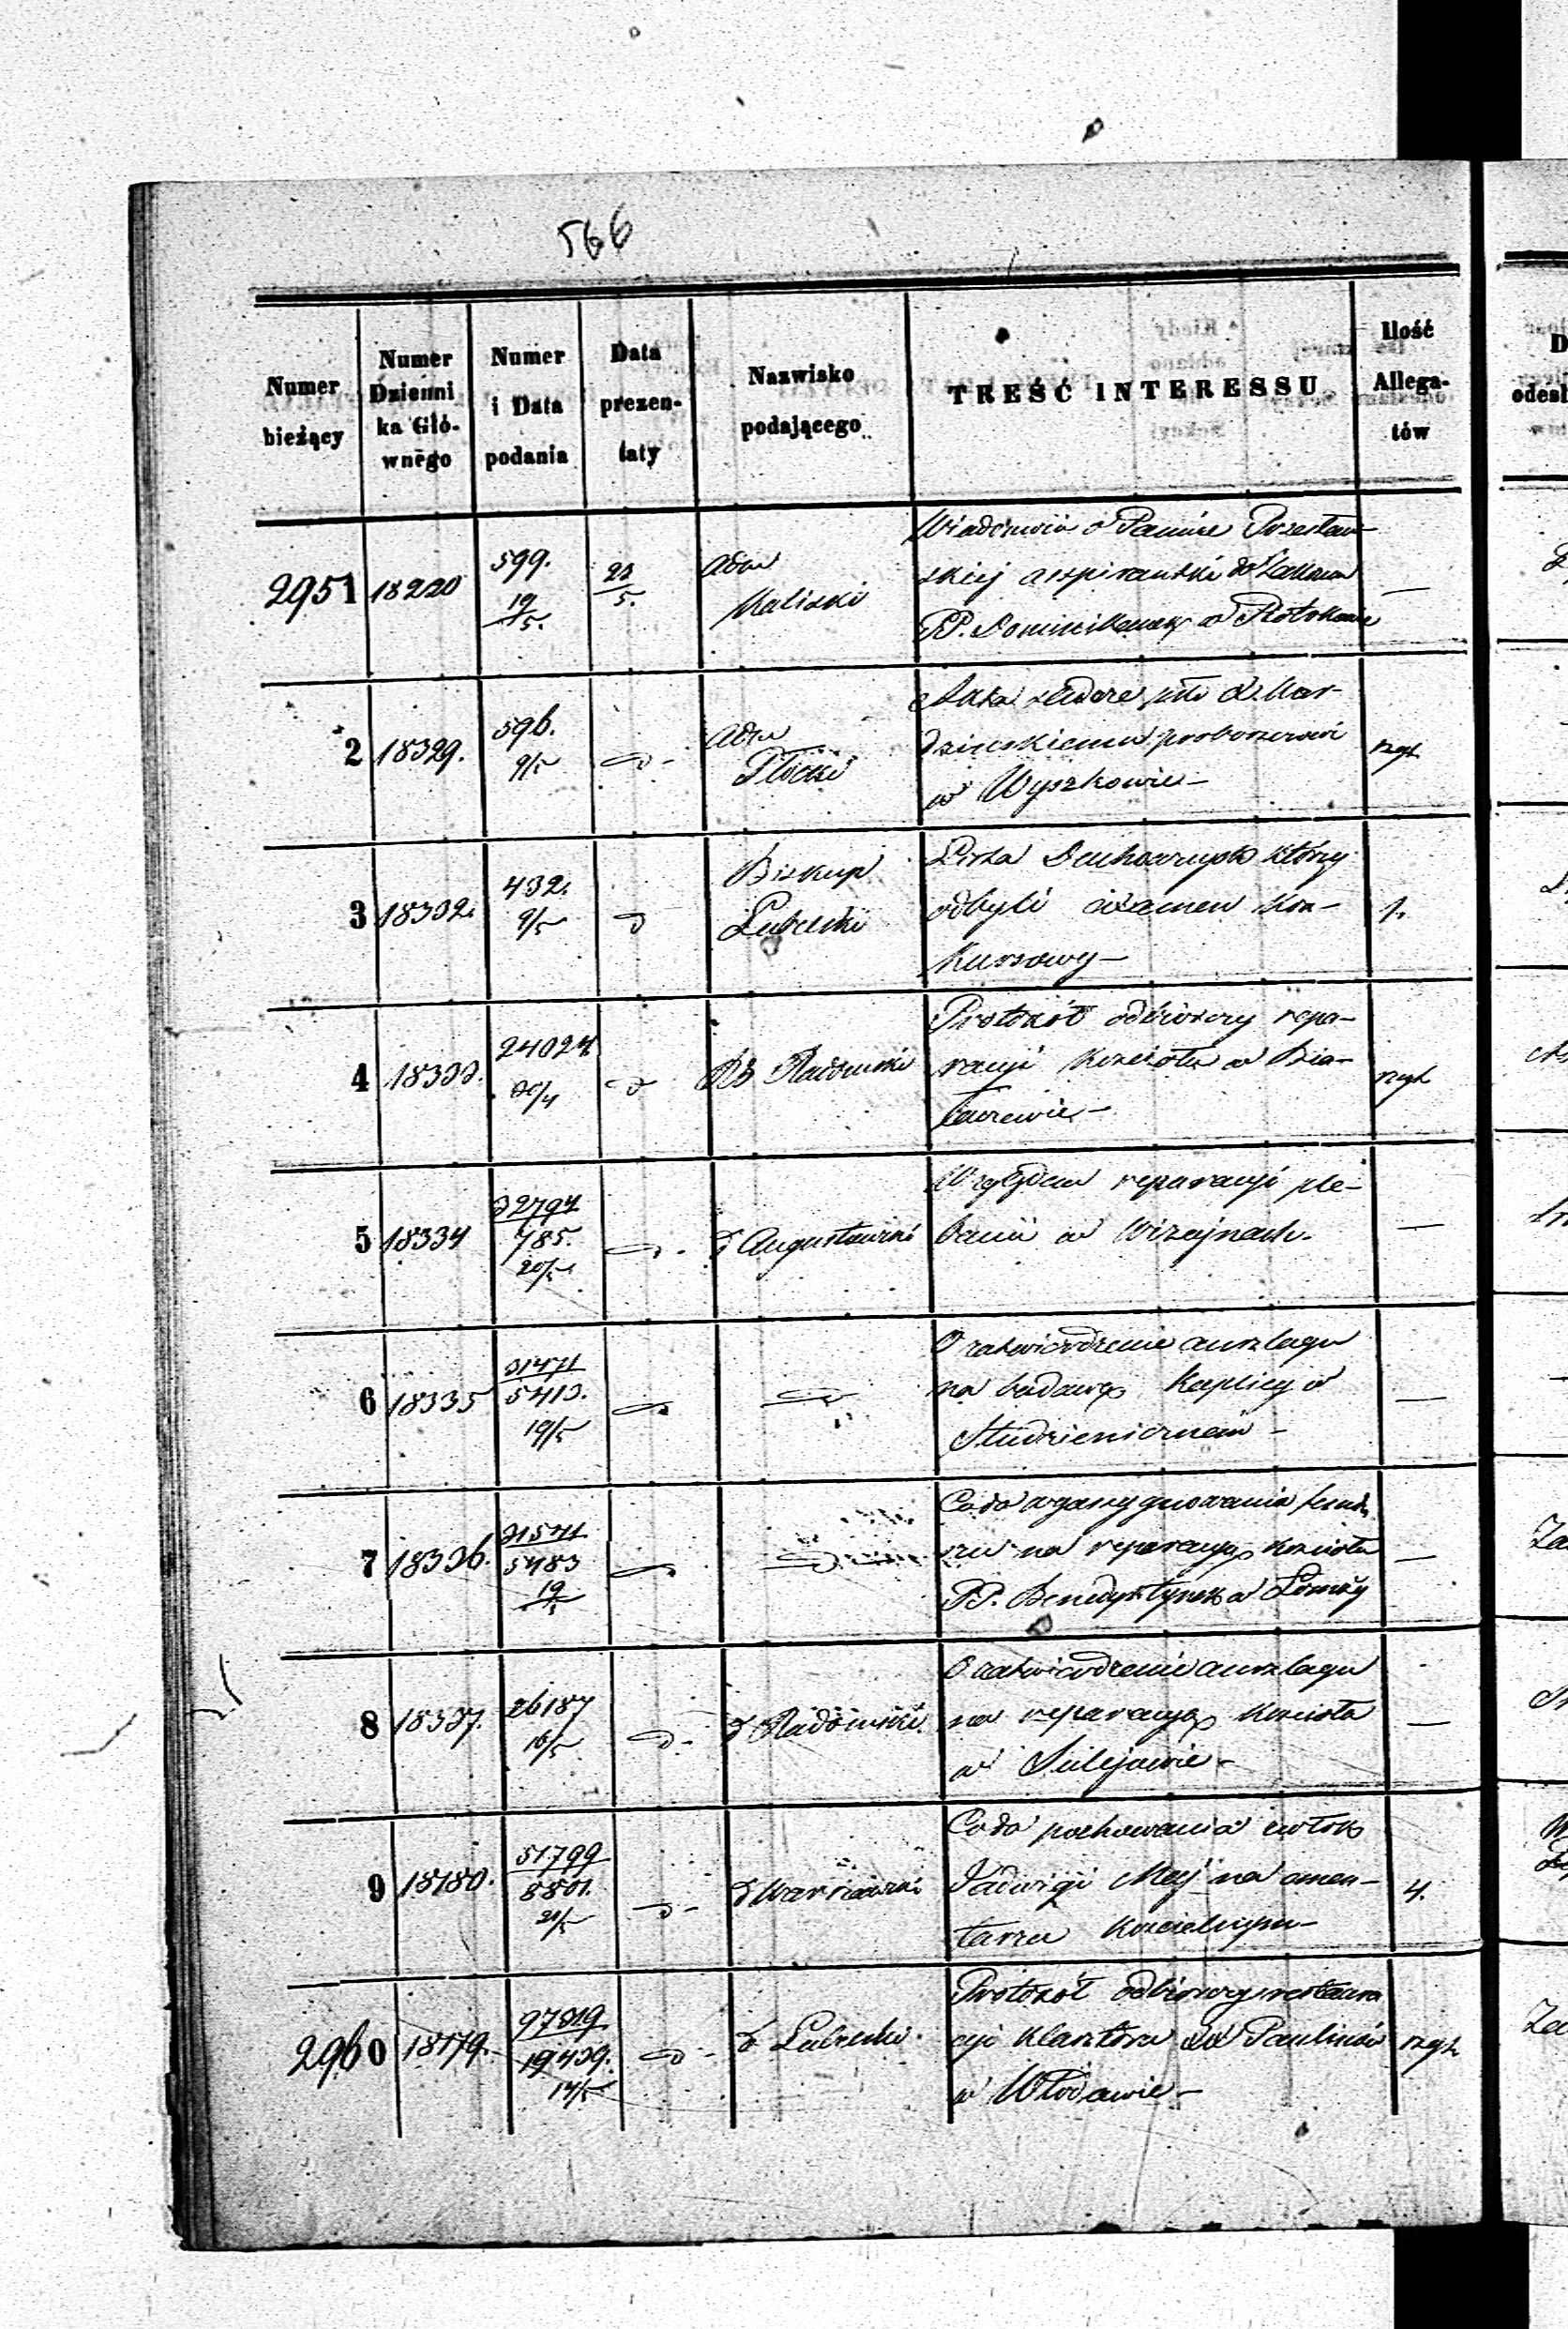 566
Numer bieżący
Numer Dzienni
ka Głó-
wnego
Numer i Data podania
Data prezen-
taty
Nazwisko podającego
TREŚĆ INTERESSU
Ilość Allega-
tów
2951 18220 599. 19/5. 21/5. Adm Kaliski
Wiadomość o Pannie
skiej aspirantki do Zakonu —
PP. Dominikanek w Piotrkowie
2 18329. 596. 9/5 d- Adm Płocki
Akta
dzińskiemu proboszczowi rzgt
w Wyszkowie —
3 18332. 432. 9/5 d Biskup Lubelski
Lista Duchownych którzy
odbyli examen kon- 1.
kursowy —
4 18333. 24024 30/4 d RG Radomski
Protokół odbiorczy repa-
racyi kościoła w Bia- rzgt
—
5 18334 32794 785. 20/5 d- d Augustowski
Względem reparacyi ple-
banii w Wizajnach. —
6 18335 31471 5413. 19/5 d d
O zatwierdzenie anszlagu
na budowę Kaplicy w —
Studzienicznem —
7 18336. 31571 5483 19/5 d d
Co do wyassygnowania fundu
szu na reparacyę kościoła —
PP. Benedyktynek w Łomży
8 18337. 26187 16/5 d- d Radomski
O zatwierdzenie anszlagu
na reparacyę kościoła —
w Sulejowie —
9 18180. 51799 8801. 21/5 d- d Warszawski
Co do pochowania zwłok
Jadwigi Mej na cmen- 4.
tarzu kościelnym —
2960 18179. 97319 19439. 14/5 d- d Lubelski
Protokół odbiorczy restaura
cyi Klasztoru XX Paulinów rzgt
w Włodawie —